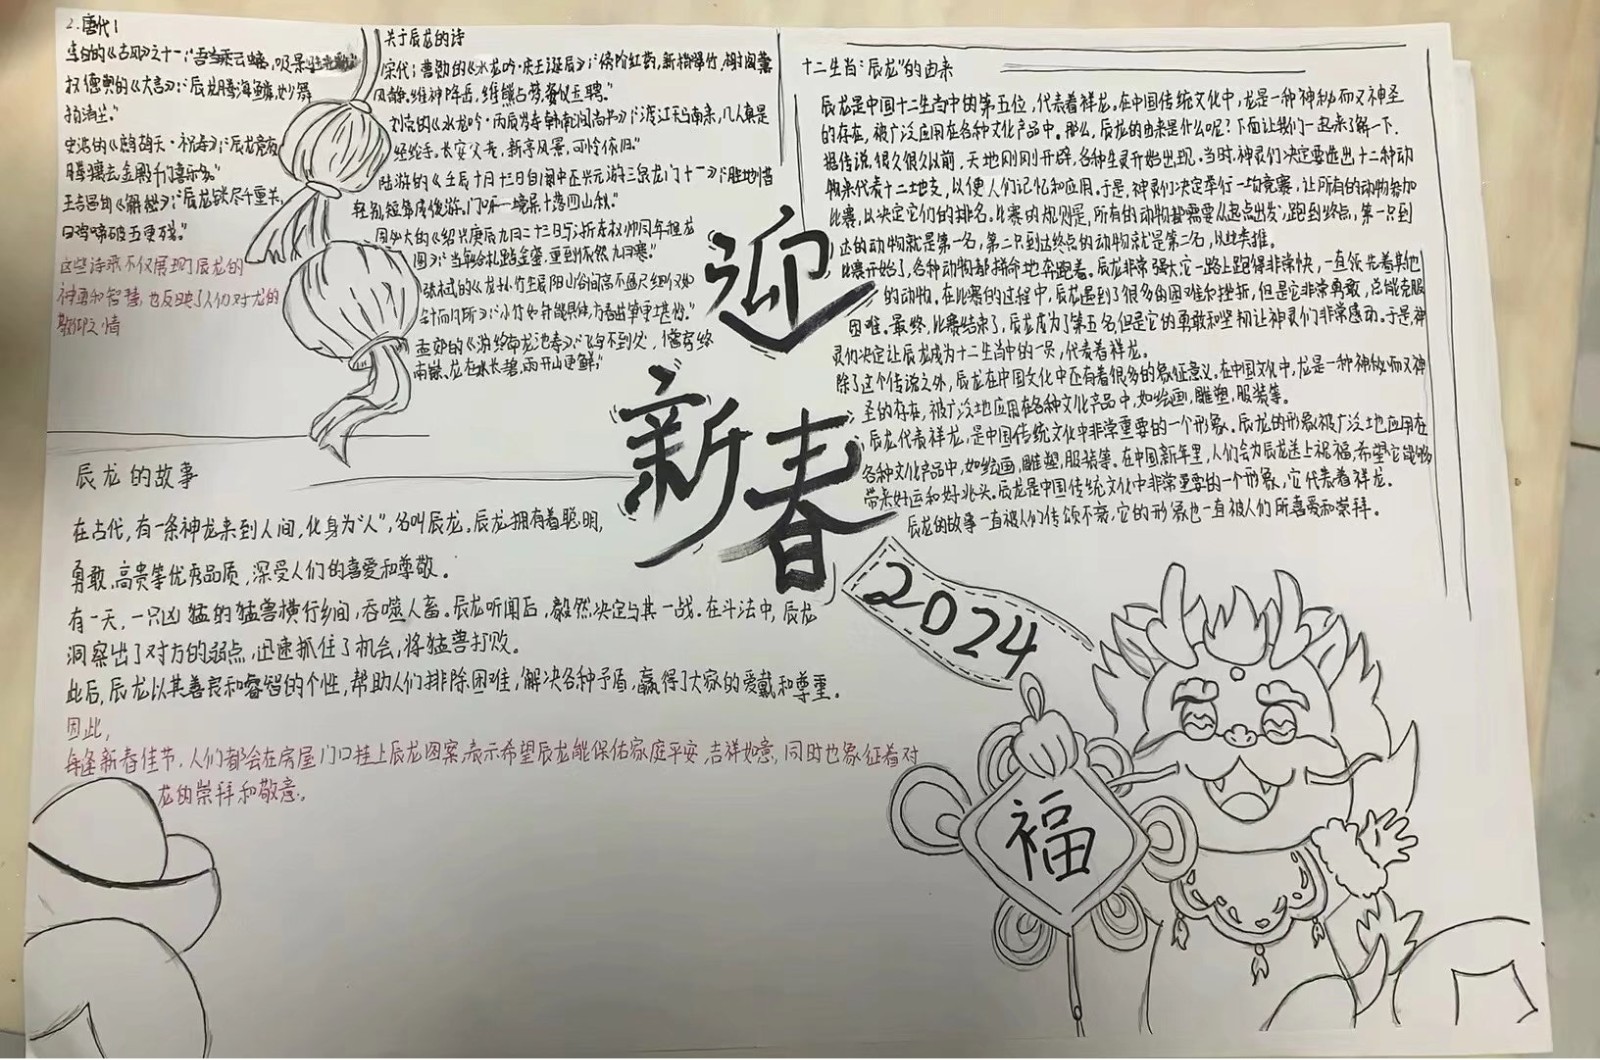 2.唐代1
李白的《古风》之十一:"吾当乘云螭,吸景
权德舆的《大言》:"辰龙腾海
史浩的《鹧鸪天·祝寿》:"辰龙
日鸡啼破五更残。"
这些诗歌不仅展现了辰龙的
神勇和智慧,也反映了人们对龙的
敬仰之情
关于辰龙的诗
宋代:曹勋的《水龙吟·庆王诞辰》:
刘克的《水龙吟·丙辰寿
渡江天马南来,几人真是
经纶手。长安父老,新亭风景,可怜依旧。"
陆游的《壬辰十月十三日自阆中还兴元游三泉龙门十一》:"胜地
孟郊的《游终南龙池寺》:"飞鸟不到处,僧房终
南巅,龙在水长碧,雨开山更鲜"
迎
新
春
2024
福
十二生肖"辰龙"的由来
辰龙是中国十二生肖中的第五位,代表着祥龙。在中国传统文化中,龙是一种神秘而又神圣
的存在,被广泛应用在各种文化产品中。那么,辰龙的由来是什么呢?下面让我们一起来了解一下.
据传说,很久很久以前,天地刚刚开辟,各种生灵开始出现。当时,神灵们决定要选出十二种动
物来代表十二地支,以便人们记忆和应用。于是,神灵们决定举行一场竞赛,让所有的动物参加
比赛,以决定它们的排名。比赛的规则是,所有的动物都需要从起点出发,跑到终点,第一只到
达的动物就是第一名,第二只到达终点的动物就是第二名,以此类推。
比赛开始了,各种动物都拼命地奔跑着。辰龙非常强大,它一路上跑得非常快,一直领先着其他
的动物。在比赛的过程中,辰龙遇到了很多的困难和挫折,但是它非常勇敢,总能克服
困难。最终,比赛结束了,辰龙成为了第五名,但是它的勇敢和坚韧让神灵们非常感动。于是,神
灵们决定让辰龙成为十二生肖中的一员,代表着祥龙。
除了这个传说之外,辰龙在中国文化中还有着很多的象征意义。在中国文化中,龙是一种神秘而又神
圣的存在,被广泛地应用在各种文化产品中,如绘画,雕塑,服装等。
辰龙代表祥龙,是中国传统文化中非常重要的一个形象。辰龙的形象被广泛地应用在
各种文化产品中,如绘画,雕塑,服装等。在中国新年里,人们会为辰龙送上祝福,希望它能够
带来好运和好兆头。辰龙是中国传统文化中非常重要的一个形象,它代表着祥龙。
辰龙的故事一直被人们传颂不衰,它的形象也一直被人们所喜爱和崇拜。
辰龙的故事
在古代,有一条神龙来到人间,化身为"人",名叫辰龙。辰龙拥有着聪明,
勇敢,高贵等优秀品质,深受人们的喜爱和尊敬。
有一天,一只凶猛的猛兽横行乡间,吞噬人畜。辰龙听闻后,毅然决定与其一战。在斗法中,辰龙
洞察出了对方的弱点,迅速抓住了机会,将猛兽打败。
此后,辰龙以其善良和睿智的个性,帮助人们排除困难,解决各种矛盾,赢得了大家的爱戴和尊重。
因此,
每逢新春佳节,人们都会在房屋门口挂上辰龙图案,表示希望辰龙能保佑家庭平安,吉祥如意,同时也象征着对
龙的崇拜和敬意。